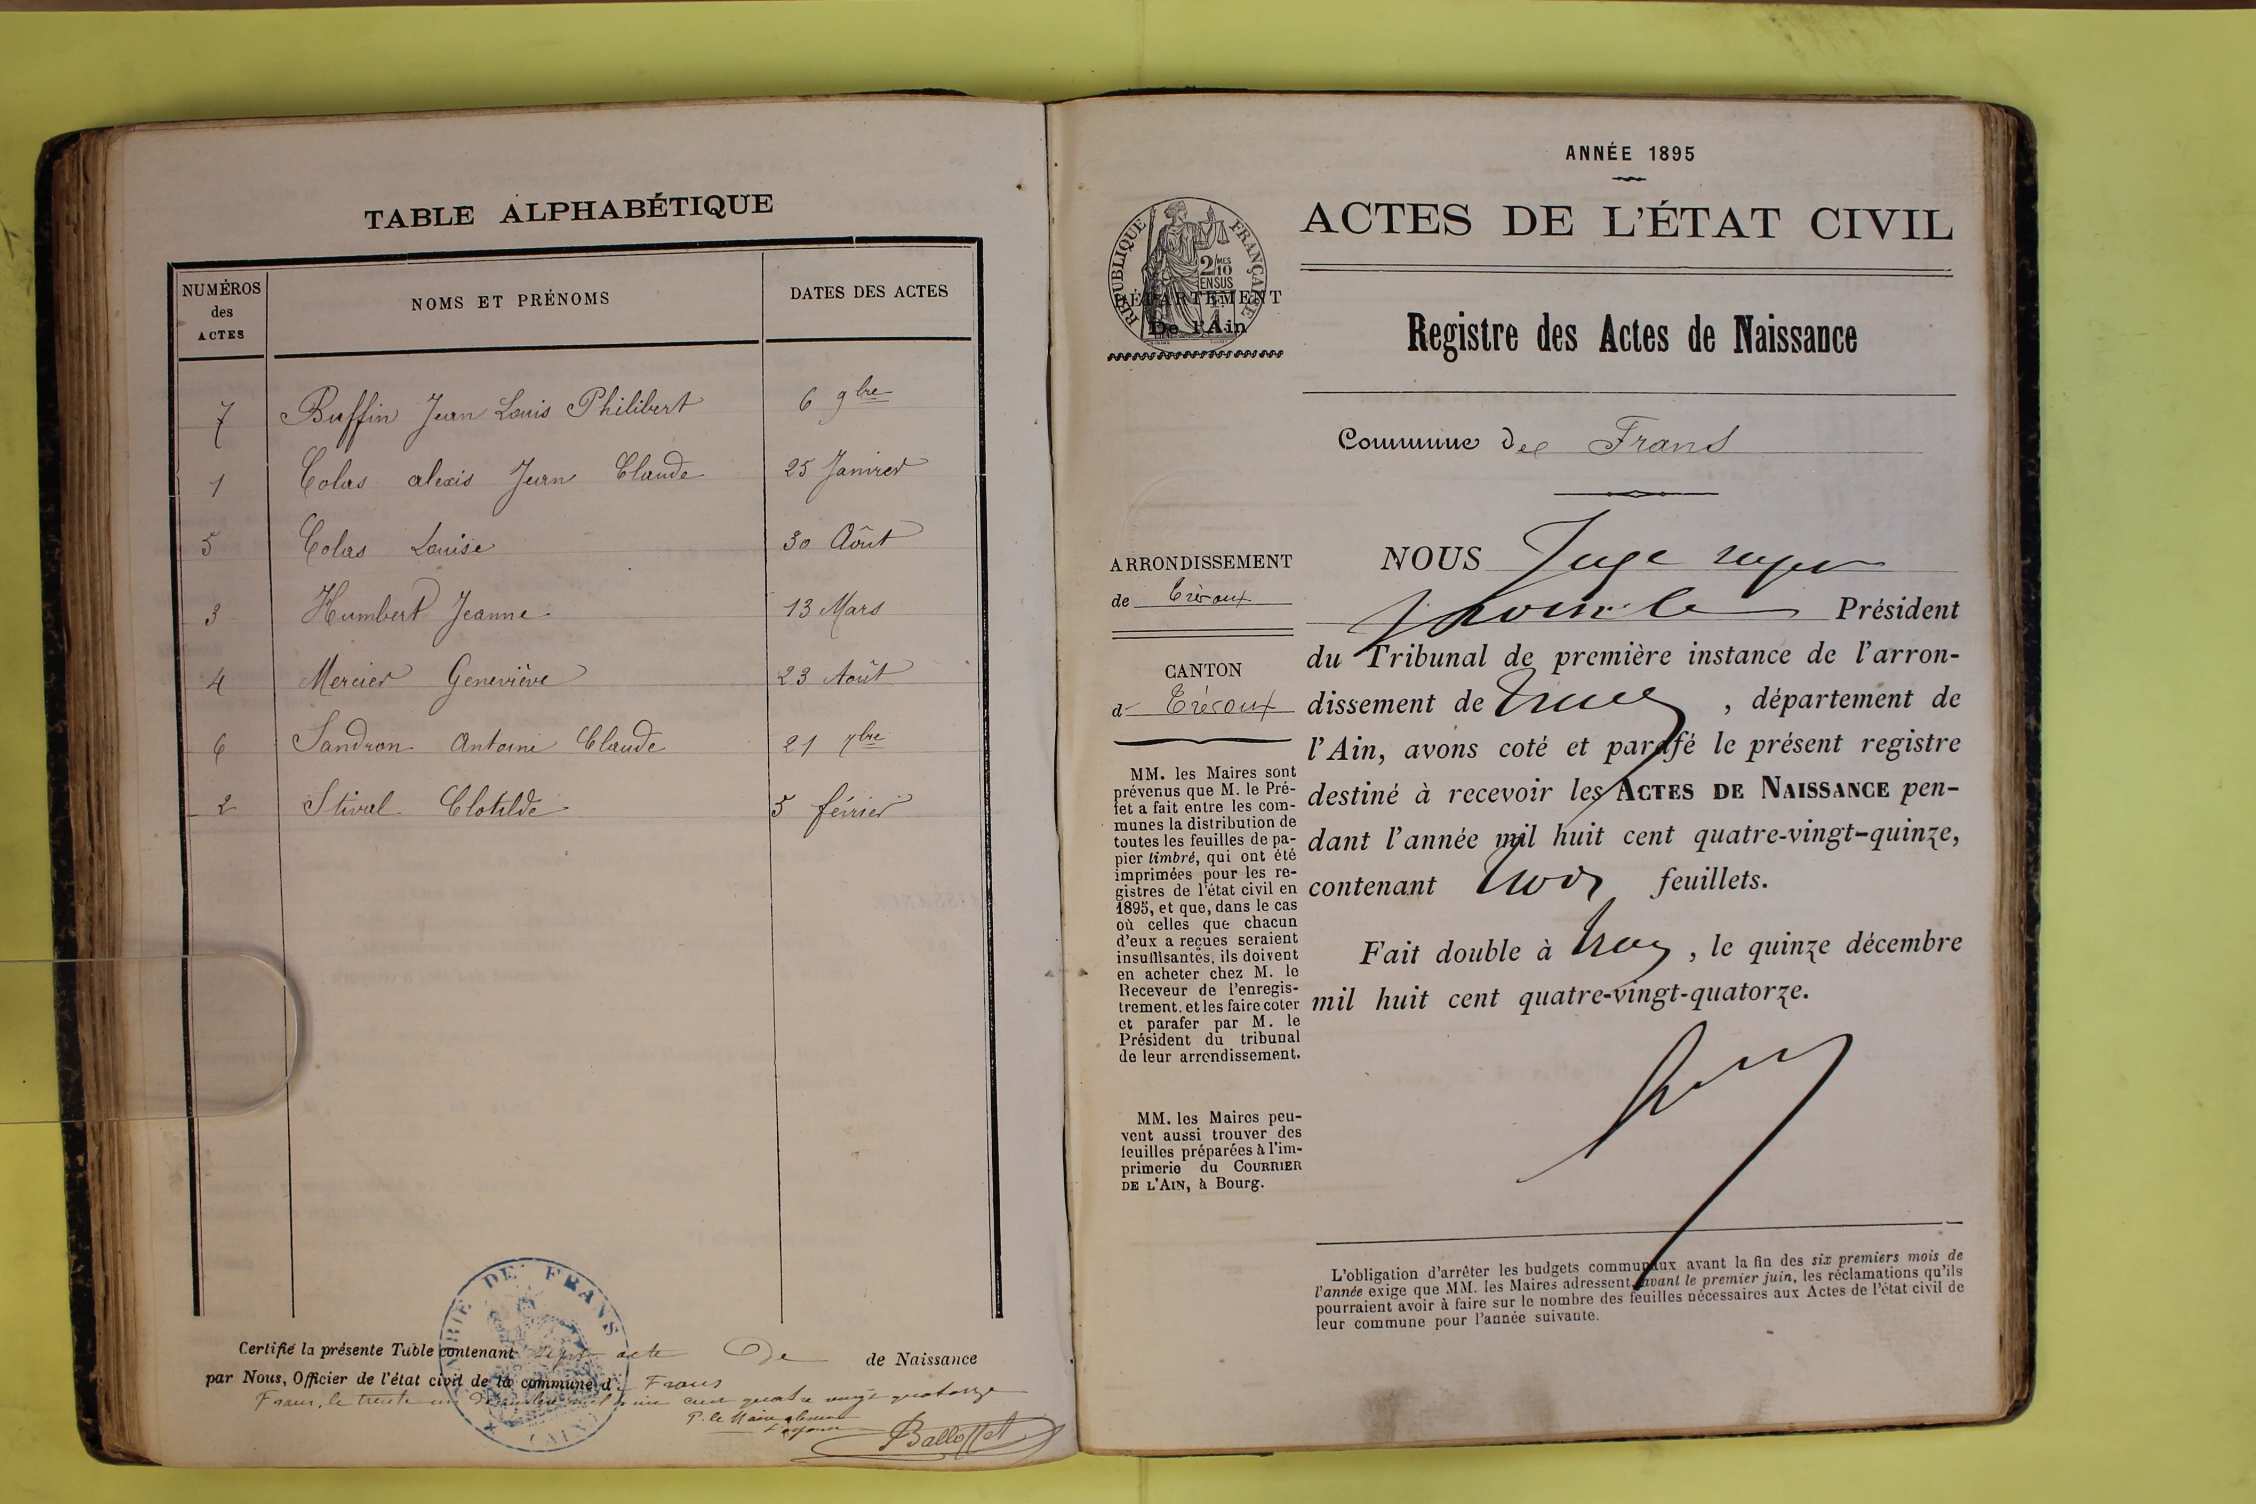 TABLE ALPHABÉTIQUE
NUMÉROS
des
ACTES
NOMS ET PRÉNOMS
DATES DES ACTES
7 Buffin Jean Louis Philibert 6 9bre
1 Colas alexis Jean Claude 25 Janvier
5 Colas Louise 30 Août
3 Humbert Jeanne 13 Mars
4 Mercier Geneviève 23 Août
6 Sandron Antoine Claude 21 7bre
2 Stival Clotilde 5 février
MAIRIE DE FRANS
(AIN)
Certifié la présente Table contenant sept acte De de Naissance
par Nous, Officier de l'état civil de la commune d Frans
Frans, le trente un Décembre mil huit cent quatre vingt quatorze
P. le Maire absent
L'adjoint
Ballofset
ANNÉE 1895
ACTES DE L'ÉTAT CIVIL
RÉPUBLIQUE FRANÇAISE
2/10 MES
EN SUS
DÉPARTEMENT
De l'Ain
Registre des Actes de Naissance
Commune de Frans
ARRONDISSEMENT
de Trévoux
CANTON
d Trévoux
MM. les Maires sont
prévenus que M. le Pré-
fet a fait entre les com-
munes la distribution de
toutes les feuilles de pa-
pier timbré, qui ont été
imprimées pour les re-
gistres de l'état civil en
1895, et que, dans le cas
où celles que chacun
d'eux a reçues seraient
insuffisantes, ils doivent
en acheter chez M. le
Receveur de l'enregis-
trement. et les faire coter
et parafer par M. le
Président du tribunal
de leur arrondissement.
MM. les Maires peu-
vent aussi trouver des
feuilles préparées à l'im-
primerie du COURRIER
DE L'AIN, à Bourg.
NOUS Juge
Président
du Tribunal de première instance de l'arron-
dissement de Trévoux, département de
l'Ain, avons coté et parafé le présent registre
destiné à recevoir les ACTES DE NAISSANCE pen-
dant l'année mil huit cent quatre-vingt-quinze,
contenant trois feuillets.
Fait double à Trévoux, le quinze décembre
mil huit cent quatre-vingt-quatorze.
L'obligation d'arrêter les budgets communaux avant la fin des six premiers mois de
l'année exige que MM. les Maires adressent, avant le premier juin, les réclamations qu'ils
pourraient avoir à faire sur le nombre des feuilles nécessaires aux Actes de l'état civil de
leur commune pour l'année suivante.